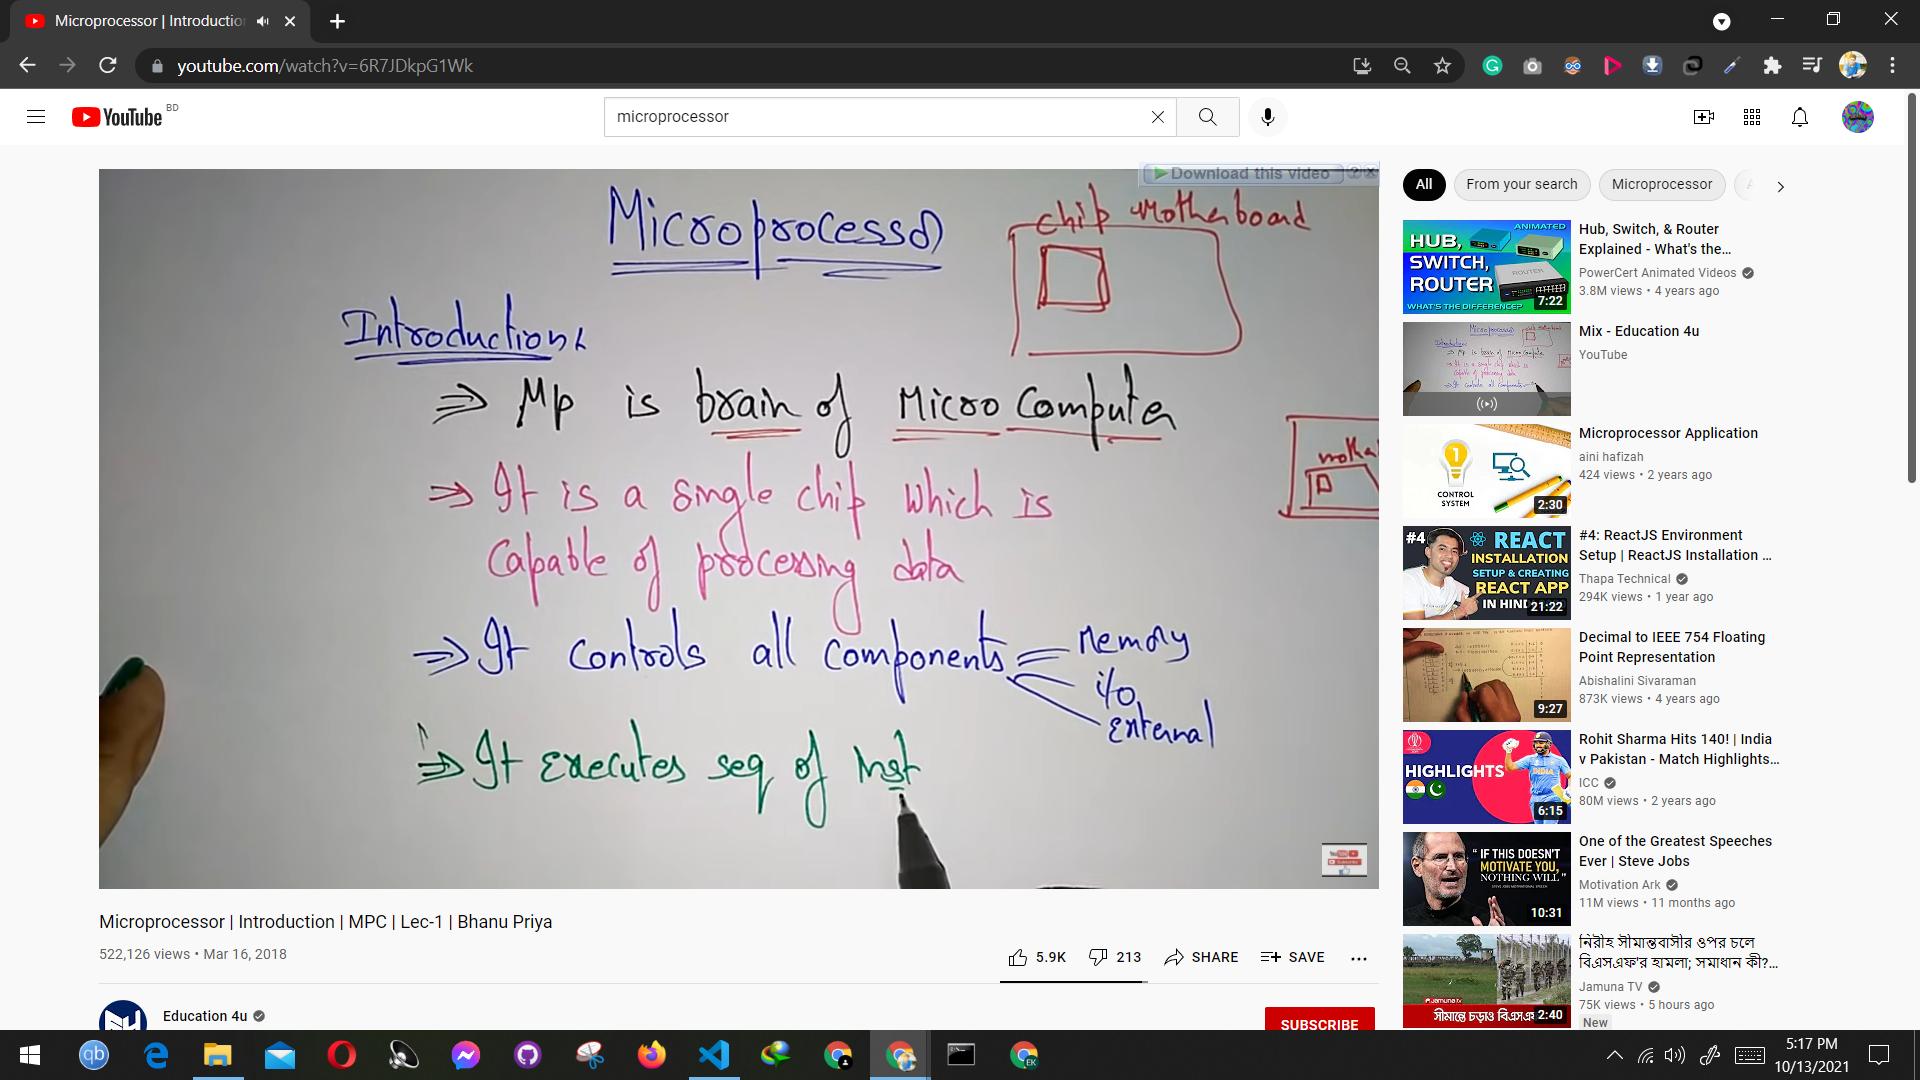 Microprocessor | Introduction
youtube.com/watch?v=6R7JDkpG1Wk
YouTube BD
microprocessor
Download this video
Microprocessor
chip Motherboard
Introduction:
⇒ Mp is brain of Micro Computer
⇒ It is a single chip which is
capable of processing data
⇒ It controls all components
Memory
i/o
External
⇒ It executes seq of inst
Microprocessor | Introduction | MPC | Lec-1 | Bhanu Priya
522,126 views • Mar 16, 2018
5.9K 213 SHARE SAVE
Education 4u
SUBSCRIBE
All From your search Microprocessor
ANIMATED
HUB,
SWITCH,
ROUTER
ROUTER
WHAT'S THE DIFFERENCE?
7:22
Hub, Switch, & Router
Explained - What's the...
PowerCert Animated Videos
3.8M views • 4 years ago
Mix - Education 4u
YouTube
1
CONTROL
SYSTEM
2:30
Microprocessor Application
aini hafizah
424 views • 2 years ago
#4 REACT
INSTALLATION
SETUP & CREATING
REACT APP
IN HIND
21:22
#4: ReactJS Environment
Setup | ReactJS Installation ...
Thapa Technical
294K views • 1 year ago
9:27
Decimal to IEEE 754 Floating
Point Representation
Abishalini Sivaraman
873K views • 4 years ago
HIGHLIGHTS
INDIA
6:15
Rohit Sharma Hits 140! | India
v Pakistan - Match Highlights...
ICC
80M views • 2 years ago
" IF THIS DOESN'T
MOTIVATE YOU,
NOTHING WILL "
10:31
One of the Greatest Speeches
Ever | Steve Jobs
Motivation Ark
11M views • 11 months ago
Jamuna TV
2:40
নিরীহ সীমান্তবাসীর ওপর চলে
বিএসএফ'র হামলা; সমাধান কী?...
Jamuna TV
75K views • 5 hours ago
New
qb
EK
5:17 PM
10/13/2021